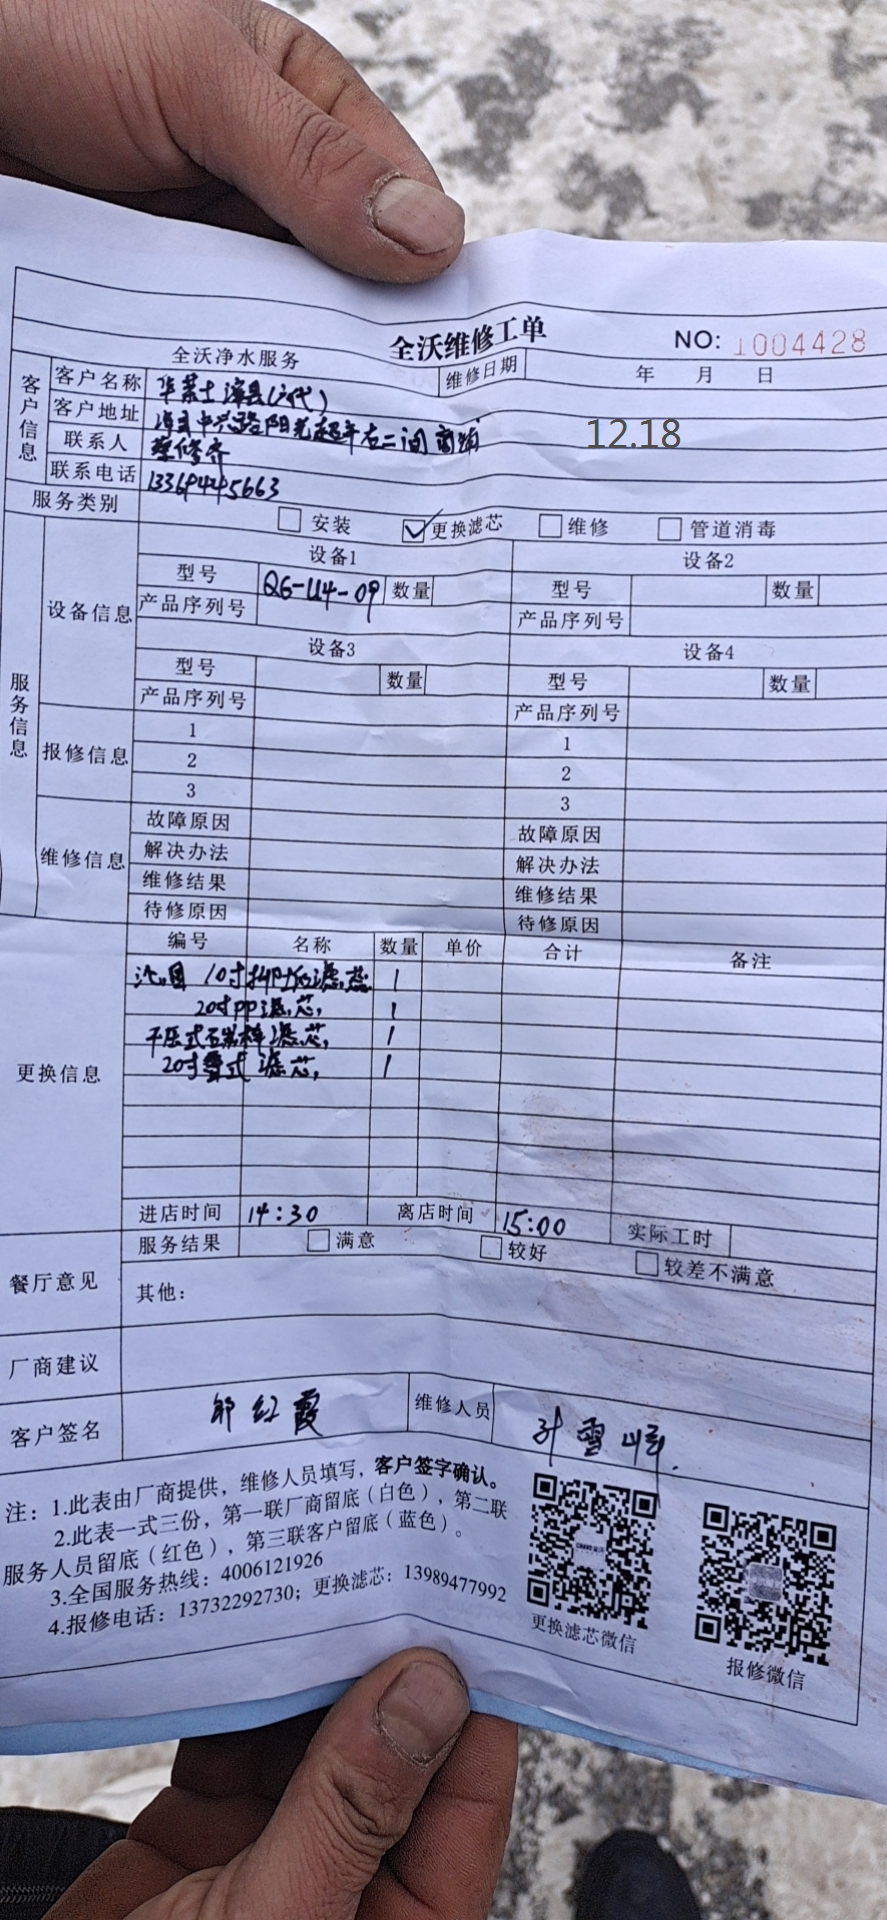 全沃维修工单
NO: 1004428
全沃净水服务
维修日期 年 月 日
客户信息
客户名称 华莱士漳县(六代)
客户地址 漳县中兴路阳光超市右二间商铺
12.18
联系人 蔡修齐
联系电话 13369445663
服务类别 安装 更换滤芯 维修 管道消毒
服务信息
设备信息
设备1 设备2
型号 QG-U4-09 数量 型号 数量
产品序列号 产品序列号
设备3 设备4
型号 数量 型号 数量
产品序列号 产品序列号
报修信息
1 1
2 2
3 3
维修信息
故障原因 故障原因
解决办法 解决办法
维修结果 维修结果
待修原因 待修原因
更换信息
编号 名称 数量 单价 合计 备注
10寸 滤芯 1
20寸PP滤芯, 1
滤芯, 1
20寸叠式滤芯, 1
进店时间 14:30 离店时间 15:00 实际工时
餐厅意见
服务结果 满意 较好 较差不满意
其他:
厂商建议
客户签名 红霞 维修人员
注：1.此表由厂商提供，维修人员填写，客户签字确认。
2.此表一式三份，第一联厂商留底（白色），第二联
服务人员留底（红色），第三联客户留底（蓝色）。
3.全国服务热线：4006121926
4.报修电话：13732292730；更换滤芯：13989477992
更换滤芯微信
报修微信